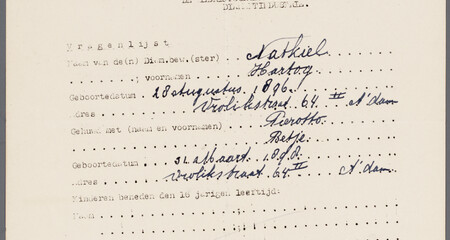 Vragenlijst
Naam van de(n) Diam.bew.(ster) Nathiel
; voornamen Hartog
Geboortedatum 28 Augustus 1896.
Adres Vrolikstraat 64 II A'dam
Gehuwd met (naam en voornamen) Pierotto
Betje.
Geboortedatum 31 Maart 1898.
Adres Vrolikstraat 64 II A'dam.
Kinderen beneden den 16 jarigen leeftijd:
Naam